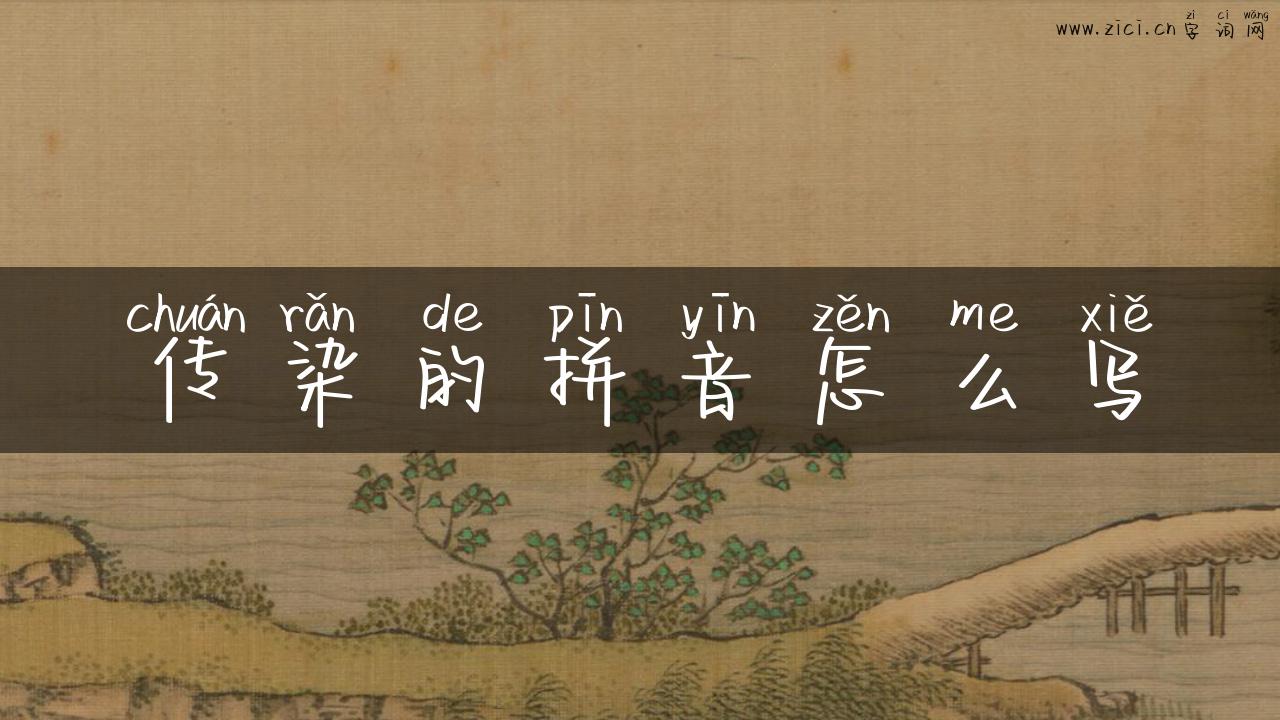 zì cí wǎng
www.zici.cn 字词网
chuán rǎn de pīn yīn zěn me xiě
传染的拼音怎么写